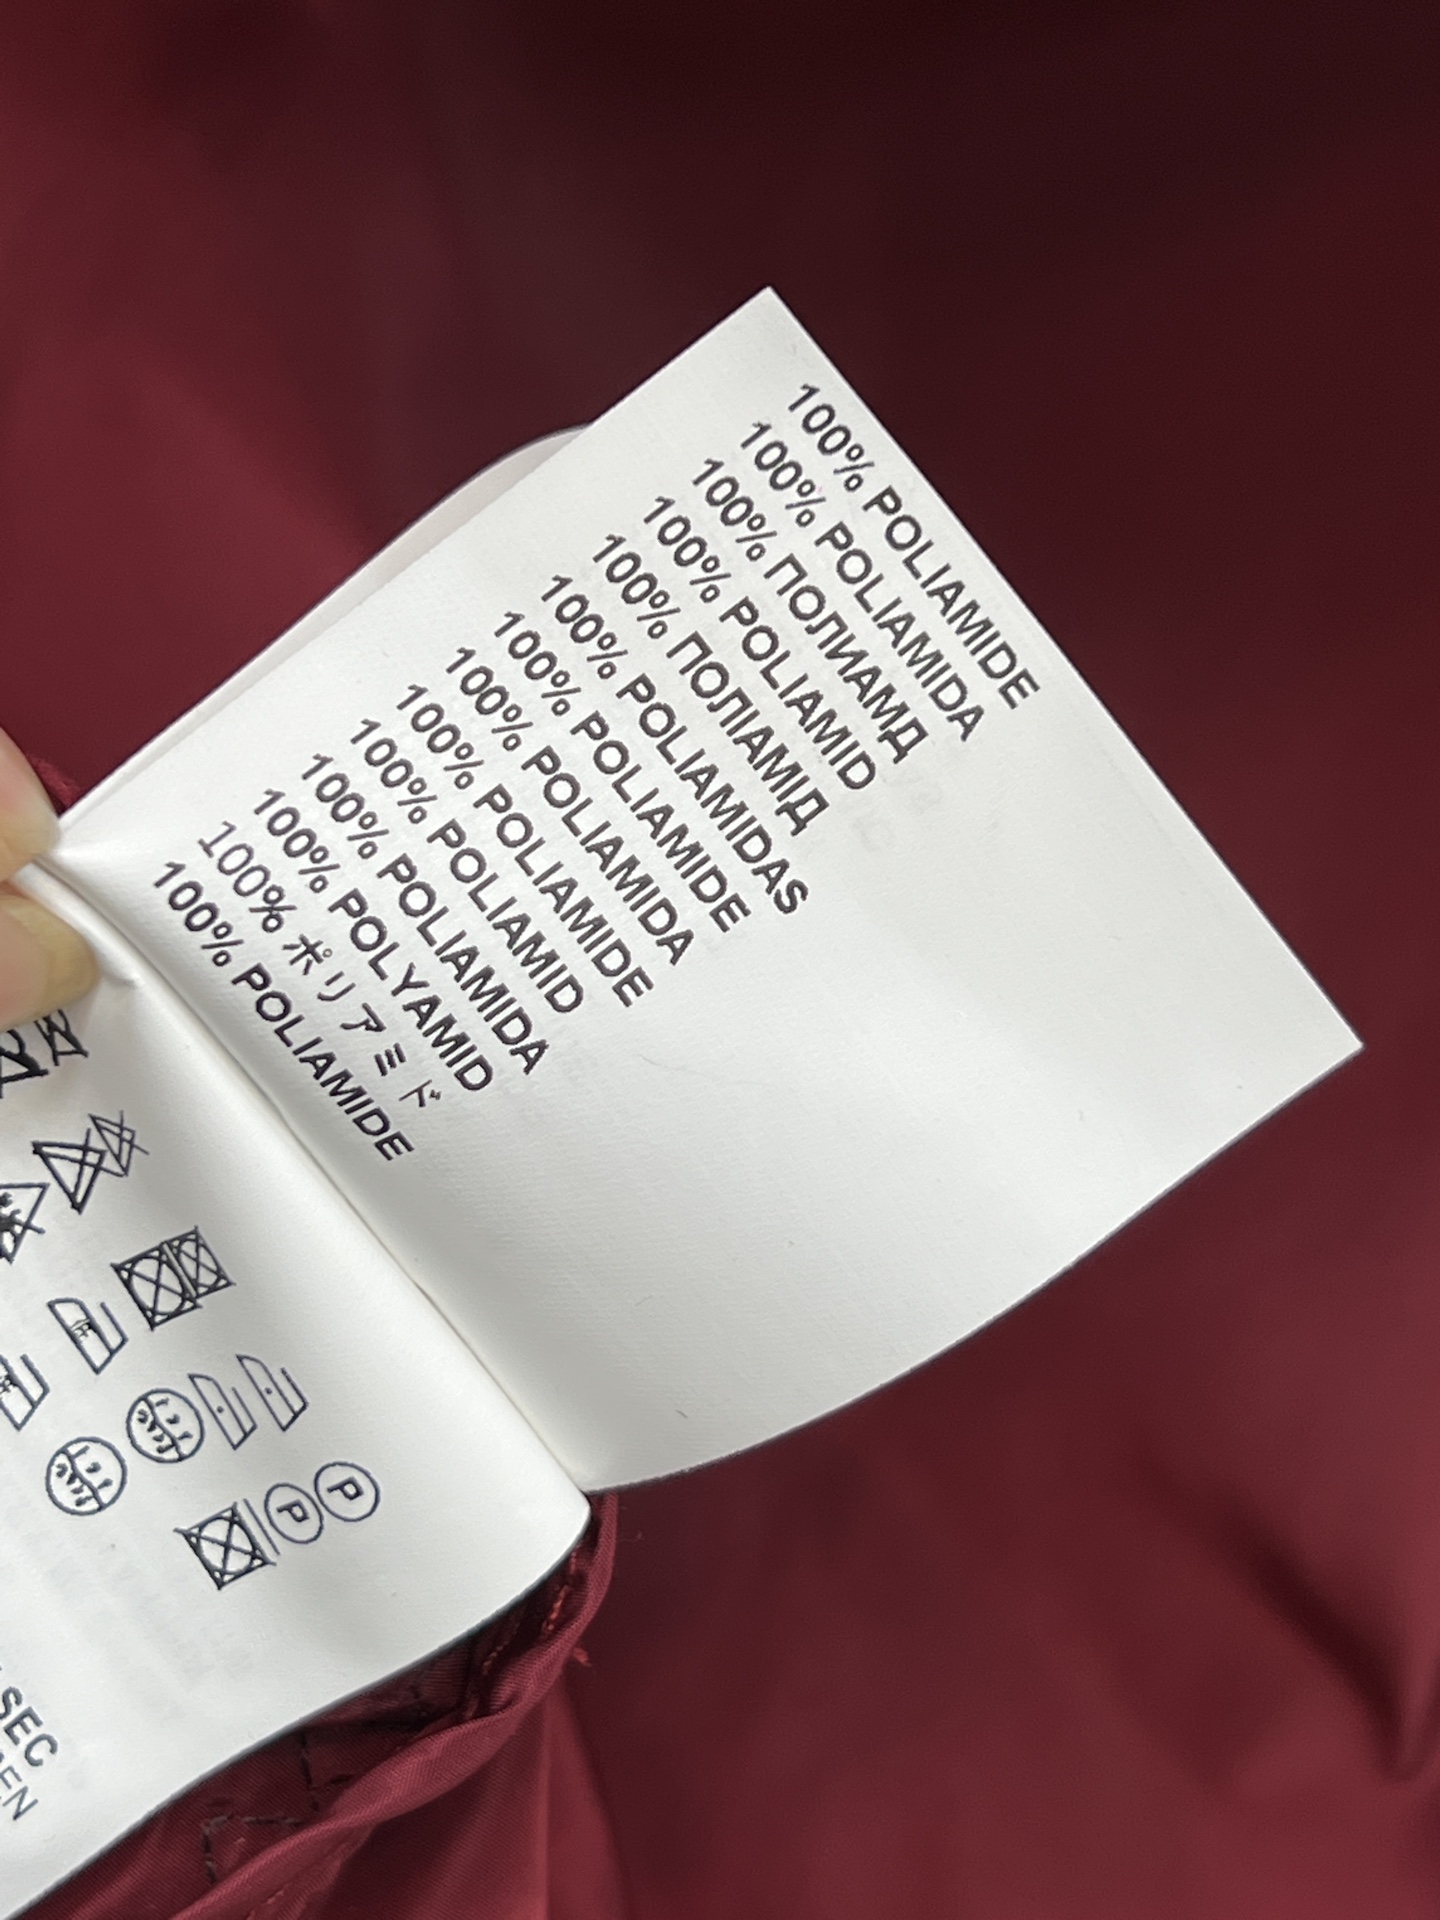 100% POLIAMIDE
100% POLIAMIDA
100% ПОЛИАМД
100% POLIAMID
100% ПОЛІАМІД
100% POLIAMIDAS
100% POLIAMIDE
100% POLIAMIDA
100% POLIAMIDE
100% POLIAMID
100% POLIAMIDA
100% POLYAMID
100% ポリアミド
100% POLIAMIDE
P
P
SEC